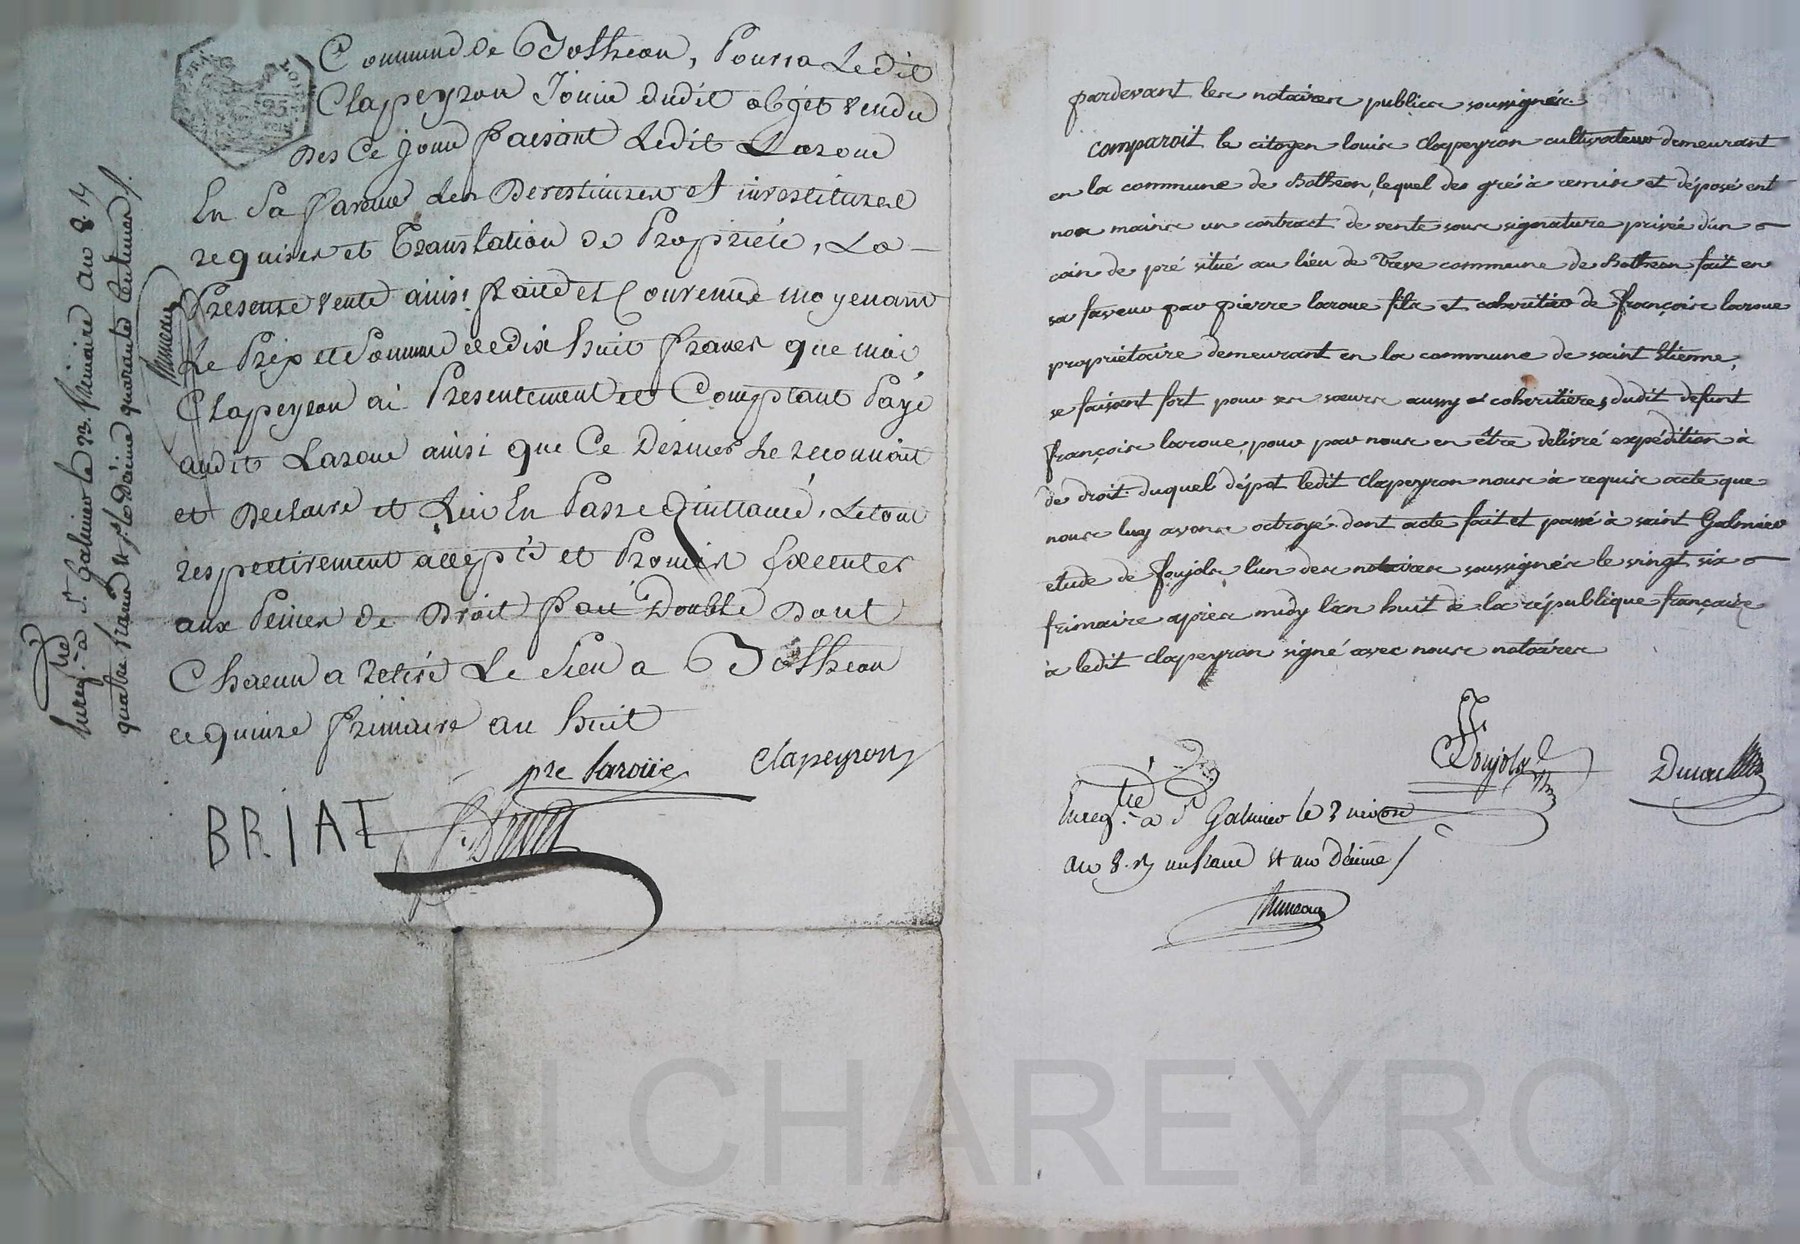 Commune de Botheon, Pourra Ledit
Clapeyron Jouir dudit objet vendu
Des Ce jour faisant Ledit Laroue
En Sa faveur Les Devestitures et investitures
requises et Translation de Propriété, La
Presente vente ainsi faite et Convenue moyenant
Le Prix et Somme de dix huit francs que moi
Clapeyron ai Presentement et Comptant Payé
audit Laroue ainsi que Ce Dernier Le reconnoit
et Declaire et Lui En Passe Quittance, Le tout
respectivement accepté et Promis Executer
aux Peines de Droit fait Double Dont
Chacun a retiré Le Sien a Botheon
ce quinze frimaire an huit
pre laroüe
Clapeyron
BRIAT
Enregtré à St Galmier le 23. frimaire an 8.
quatre francs et pr le Décime quarante centimes
pardevant les notaires publics soussignés
comparoit le citoyen louis clapeyron cultivateur demeurant
en la commune de Botheon, lequel de gré à remis et déposé ent
nos mains un contract de vente sous signature privée d'un
coin de pré situé au lieu de Treve commune de Botheon fait en
sa faveur par pierre laroue fils et coheritier de françois laroue
proprietaire demeurant en la commune de saint Etienne,
se faisant fort pour ses sœurs aussy coheritières dudit defunt
françois laroue, pour par nous en être delivré expédition à
de droit. duquel dépot ledit clapeyron nous à requis acte que
nous luy avons octroyé. dont acte fait et passé à saint Galmier
etude de foujols l'un des notaires soussignés le vingt six
frimaire apres midy l'an huit de la république française
à ledit clapeyron signé avec nous notaires
Foujols
Enregtré à St Galmier le 3 nivose
an 8. un franc et un Décime
CHAREYRON